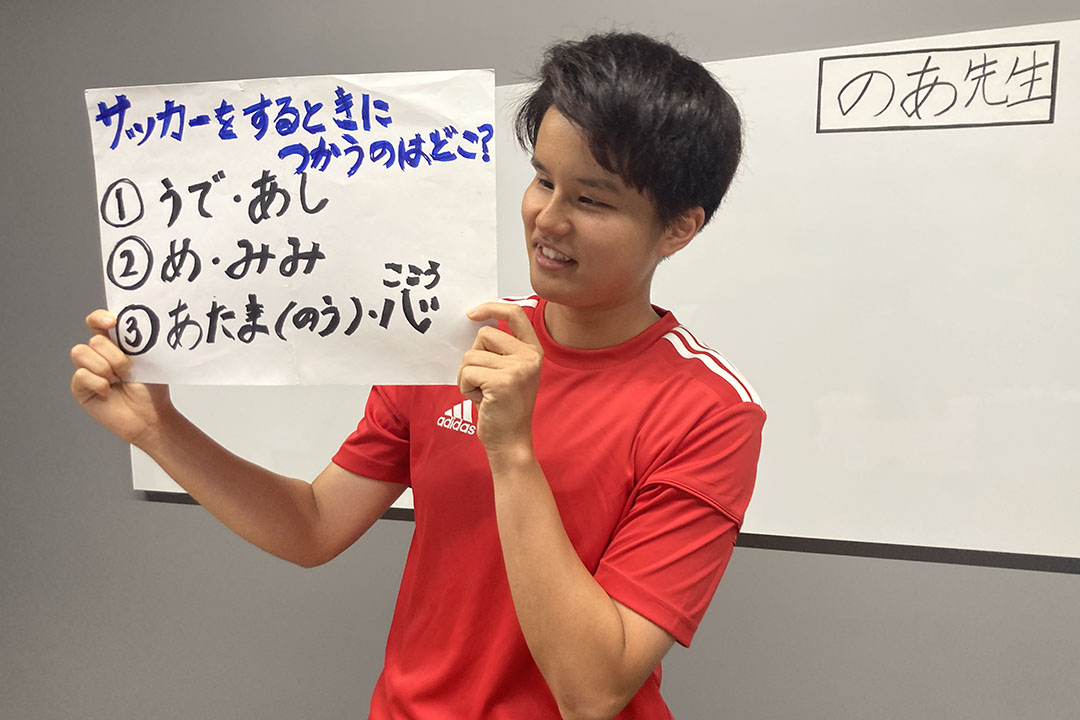 サッカーをするときに
つかうのはどこ?
① うで・あし
② め・みみ
こころ
③ あたま(のう)・心
のあ先生
adidas